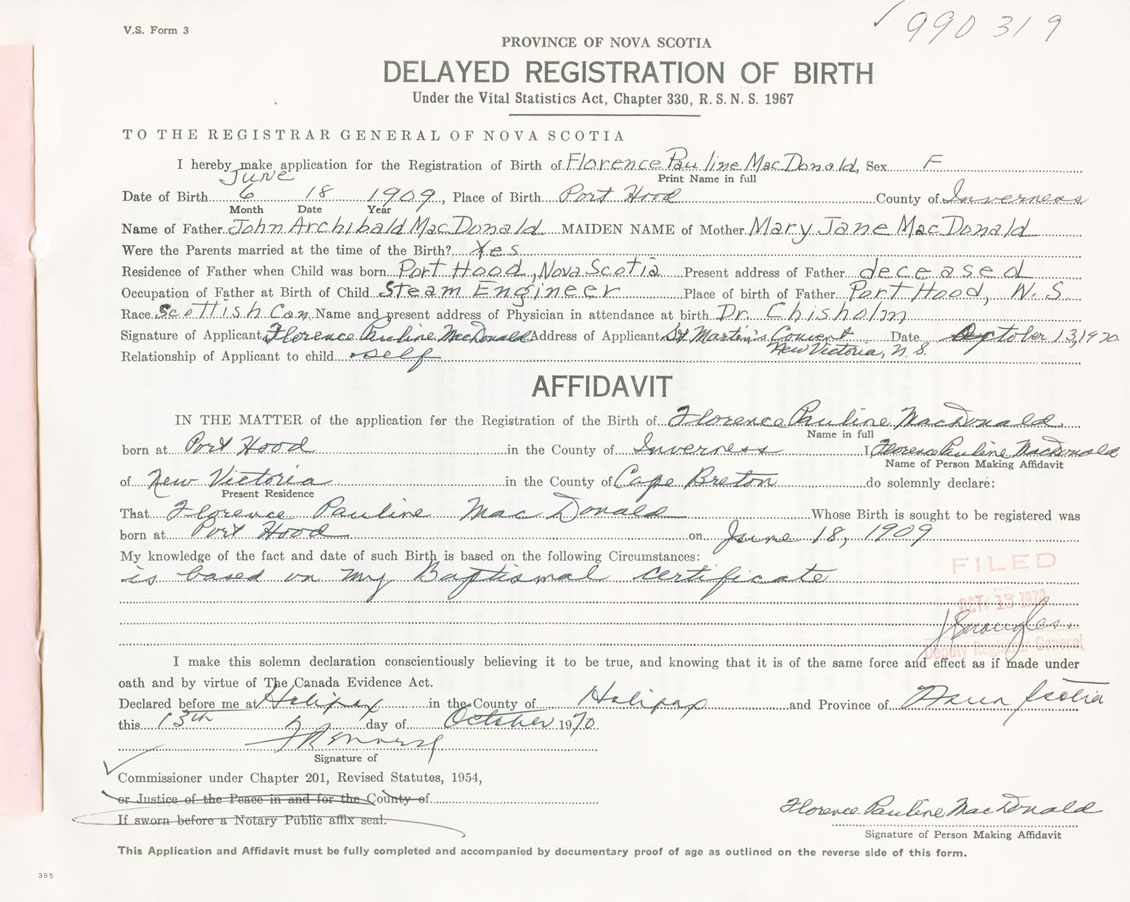 V.S. Form 3
990319
PROVINCE OF NOVA SCOTIA
DELAYED REGISTRATION OF BIRTH
Under the Vital Statistics Act, Chapter 330, R.S.N.S. 1967
TO THE REGISTRAR GENERAL OF NOVA SCOTIA
I hereby make application for the Registration of Birth of Florence Pauline MacDonald, Sex F
Print Name in full
June
Date of Birth 6 18 1909, Place of Birth Port Hood County of Inverness
Month Date Year
Name of Father John Archibald MacDonald MAIDEN NAME of Mother Mary Jane MacDonald
Were the Parents married at the time of the Birth? Yes
Residence of Father when Child was born Port Hood, Nova Scotia Present address of Father deceased
Occupation of Father at Birth of Child Steam Engineer Place of birth of Father Port Hood, N.S
Race Scottish Can Name and present address of Physician in attendance at birth Dr. Chisholm
Signature of Applicant Florence Pauline MacDonald Address of Applicant St Martin's Convent Date October 13, 1970
New Victoria, N.S.
Relationship of Applicant to child self
AFFIDAVIT
IN THE MATTER of the application for the Registration of the Birth of Florence Pauline MacDonald
Name in full
born at Port Hood in the County of Inverness I Florence Pauline MacDonald
Name of Person Making Affidavit
of New Victoria in the County of Cape Breton do solemnly declare:
Present Residence
That Florence Pauline MacDonald Whose Birth is sought to be registered was
born at Port Hood on June 18, 1909
My knowledge of the fact and date of such Birth is based on the following Circumstances:
is based on my Baptismal certificate
FILED
OCT 13 1970
Deputy Registrar General
I make this solemn declaration conscientiously believing it to be true, and knowing that it is of the same force and effect as if made under
oath and by virtue of The Canada Evidence Act.
Declared before me at Halifax in the County of Halifax and Province of Nova Scotia
this 13th day of October 1970
Signature of
Commissioner under Chapter 201, Revised Statutes, 1954,
or Justice of the Peace in and for the County of
If sworn before a Notary Public affix seal.
Florence Pauline MacDonald
Signature of Person Making Affidavit
This Application and Affidavit must be fully completed and accompanied by documentary proof of age as outlined on the reverse side of this form.
385